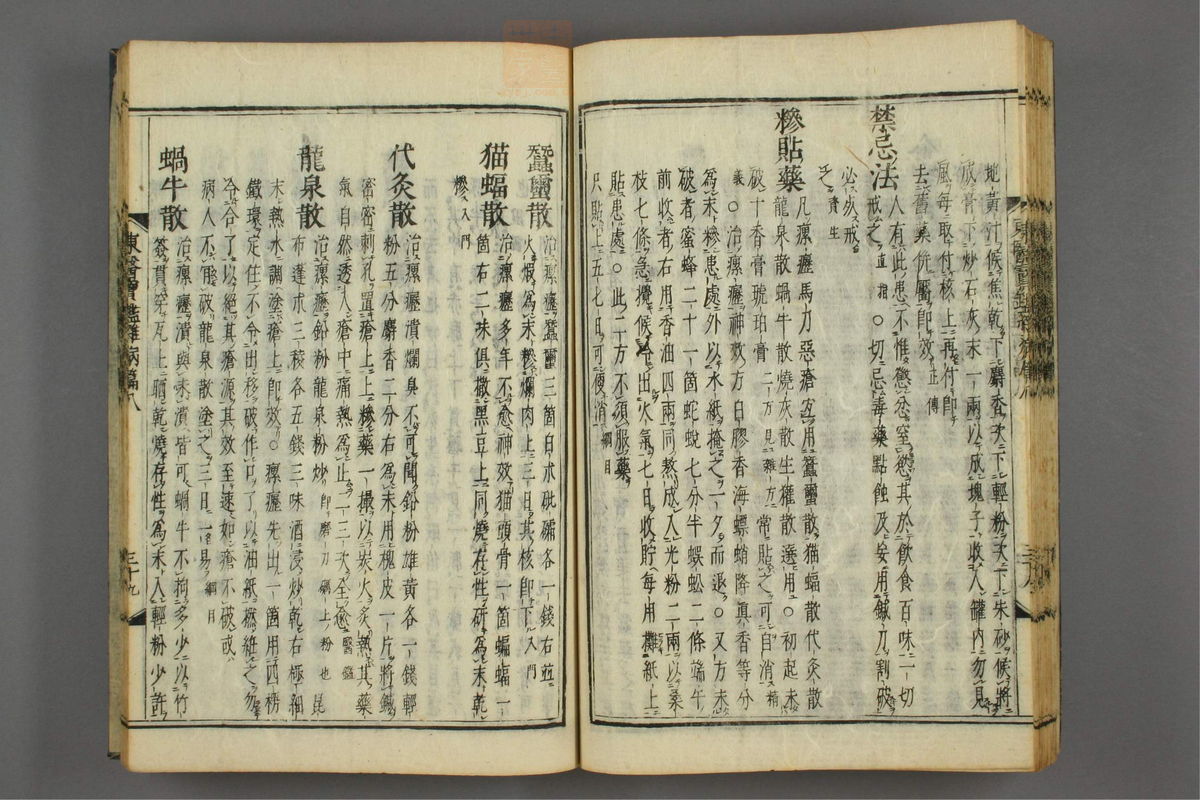 地黃汁候焦乾下麝香次下輕粉次下朱砂候將
成膏下炒石灰末一兩以成塊子收入罐內勿見
風每取付核上再付即
去舊藥洗屬即效 正傳
禁忌法 人有此患不惟懲忿窒慾其於飲食百味一切
戒之 直指 ○切忌毒藥點蝕及妄用鍼刀割破
必戒
之 資生
糝貼藥 凡瘰癧馬力惡瘡宜用蠶蠒散猫蝠散代灸散
龍泉散蝸牛散燒灰散生㺄散選用○初起未
破十香膏琥珀膏 二方見雜方 常貼之可自消 精
義 ○治瘰癧神效方白膠香海螵蛸降眞香等分
為末糝患處外以水紙掩之一夕而退○又方未
破者蜜蜂二十一箇蛇蛻七分半蜈蚣二條端午
前收者右用香油四兩同熬成入光粉二兩以桑
枝七條急攪候冷出火氣七日收貯每用攤紙上
貼患處○此二方不須服藥
只貼上五七日可便消 綱目
蠶蠒散 治瘰癧蠶蠒三箇白朮砒礵各一錢右並
火煅為末糝爛肉上三日其核即下 入門
猫蝠散 治瘰癧多年不愈神效猫頭骨一箇蝙蝠一
箇右二味俱撒黑豆上同燒存性硏為末乾
糝 入門
代灸散 治瘰癧潰爛臭不可聞鉛粉雄黃各一錢輕
粉五分麝香二分右為末用槐皮一片將鍼
密密刺孔置瘡上上糝藥一撮以炭火灸熱其藥
氣自然透入瘡中痛熱為止二三次全愈 醫鑑
龍泉散 治瘰癧鉛粉龍泉粉炒 即磨刀礪上粉也 昆
布蓬朮三稜各五錢三味酒浸炒乾右極細
末熱水調塗瘡上即效○瘰癧先出一箇用四楞
鐵環定住不令出移破作口了以油紙撚紝之勿
令合了以絕其瘡源其效至速如瘡不破或
病人不肯破龍泉散塗之三日一易 綱目
蝸牛散 治瘰癧潰與未潰皆可蝸牛不拘多少以竹
簽貫穿瓦上晒乾燒存性為末入輕粉少許
東醫寶鑑雜病篇八
三十九